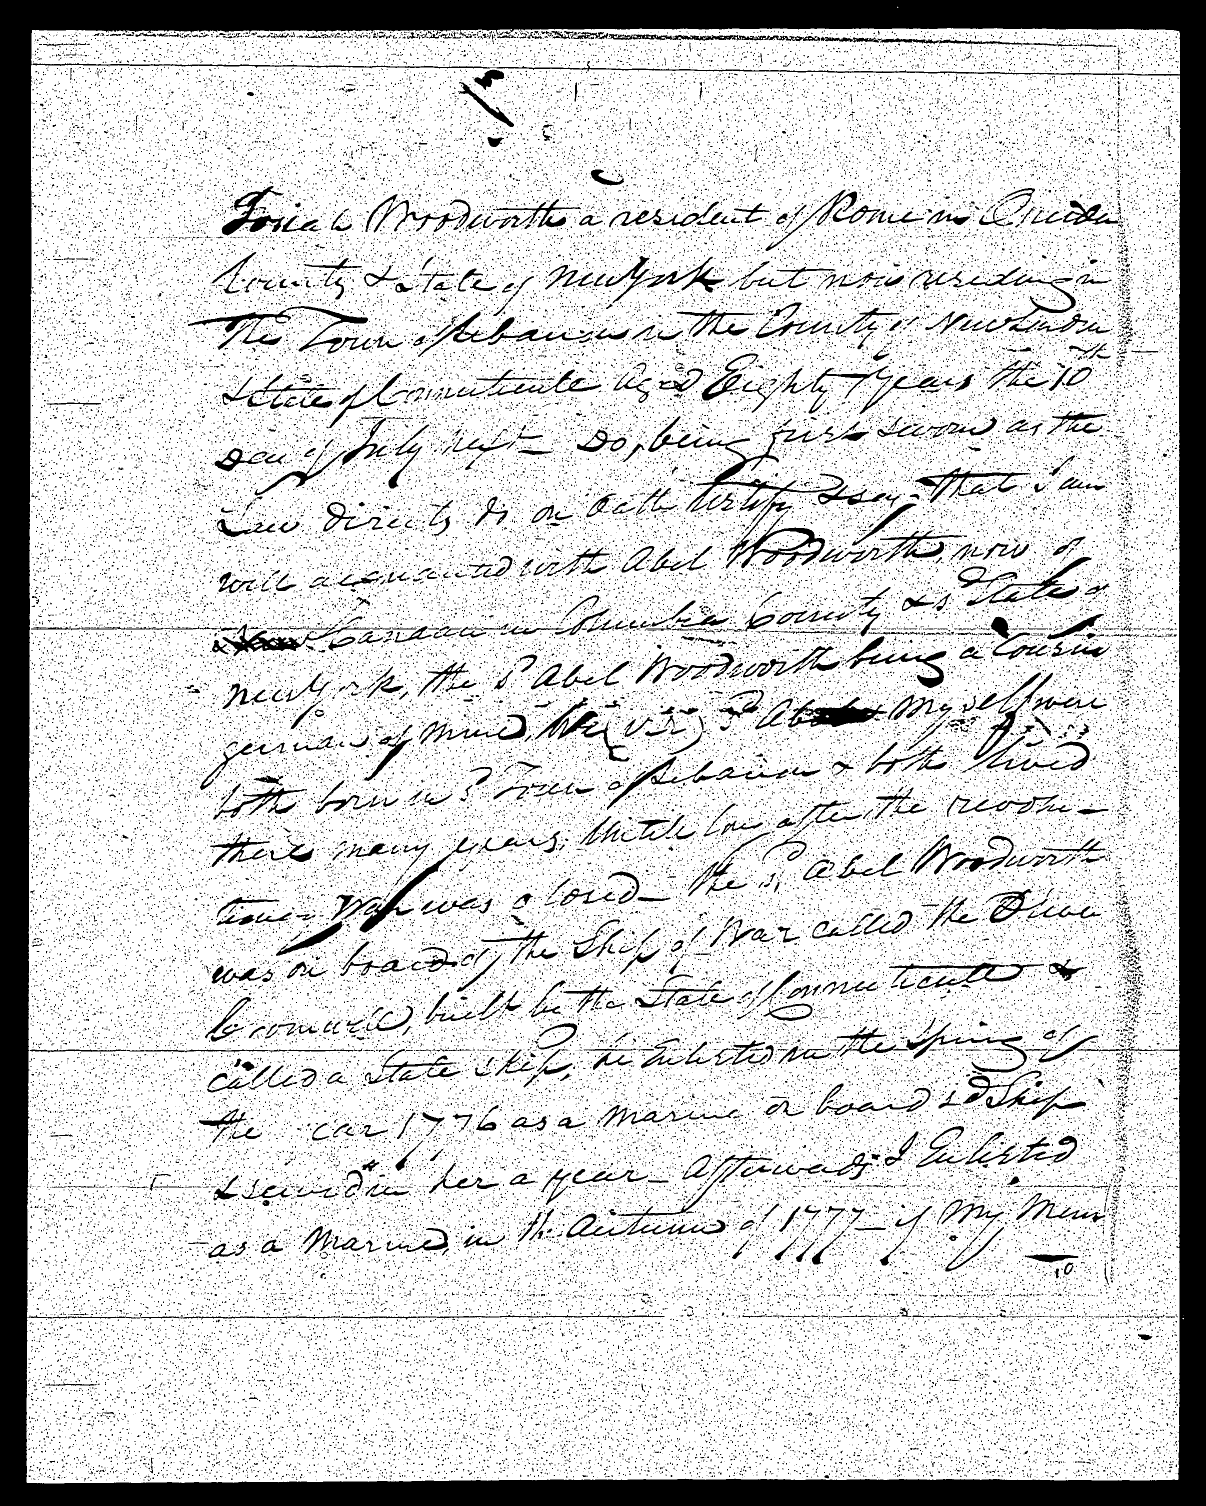 Josiah Woodworth a resident of Rome in Oneida
County & State of New York but now residing in
The Town of Lebanon in the County of New London
& State of Connecticute Aged Eighty 7 years the 10th
Day of July Next - Do, being first sworn as the
Law directs do on Oath Certify & say - That I am
well acquainted with Abel Woodworth, now of
Canaan in Columbia County & sd State of
New York, the sd Abel Woodworth being a Cousin
german of mine, We (viz) sd Abel & Myself were
both born in sd Town of Lebanon & both lived
there many years, Untill long after the revolu-
tionary War was closed - The sd Abel Woodworth
was on board of the Ship of War called the Oliver
Cromwell, built by the State of Connecticutt &
called a State ship, he Enlisted in the Spring of
the ear 1776 as a Marine on board sd Ship
& served in her a year - Afterwards I Enlisted
as a Marine, in the Autumn of 1777 - if My Mem
10